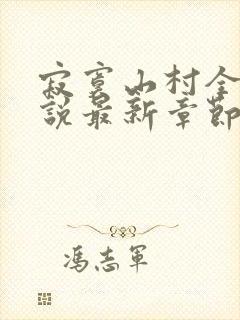 寂寞山村全
說最新章節
馮志軍